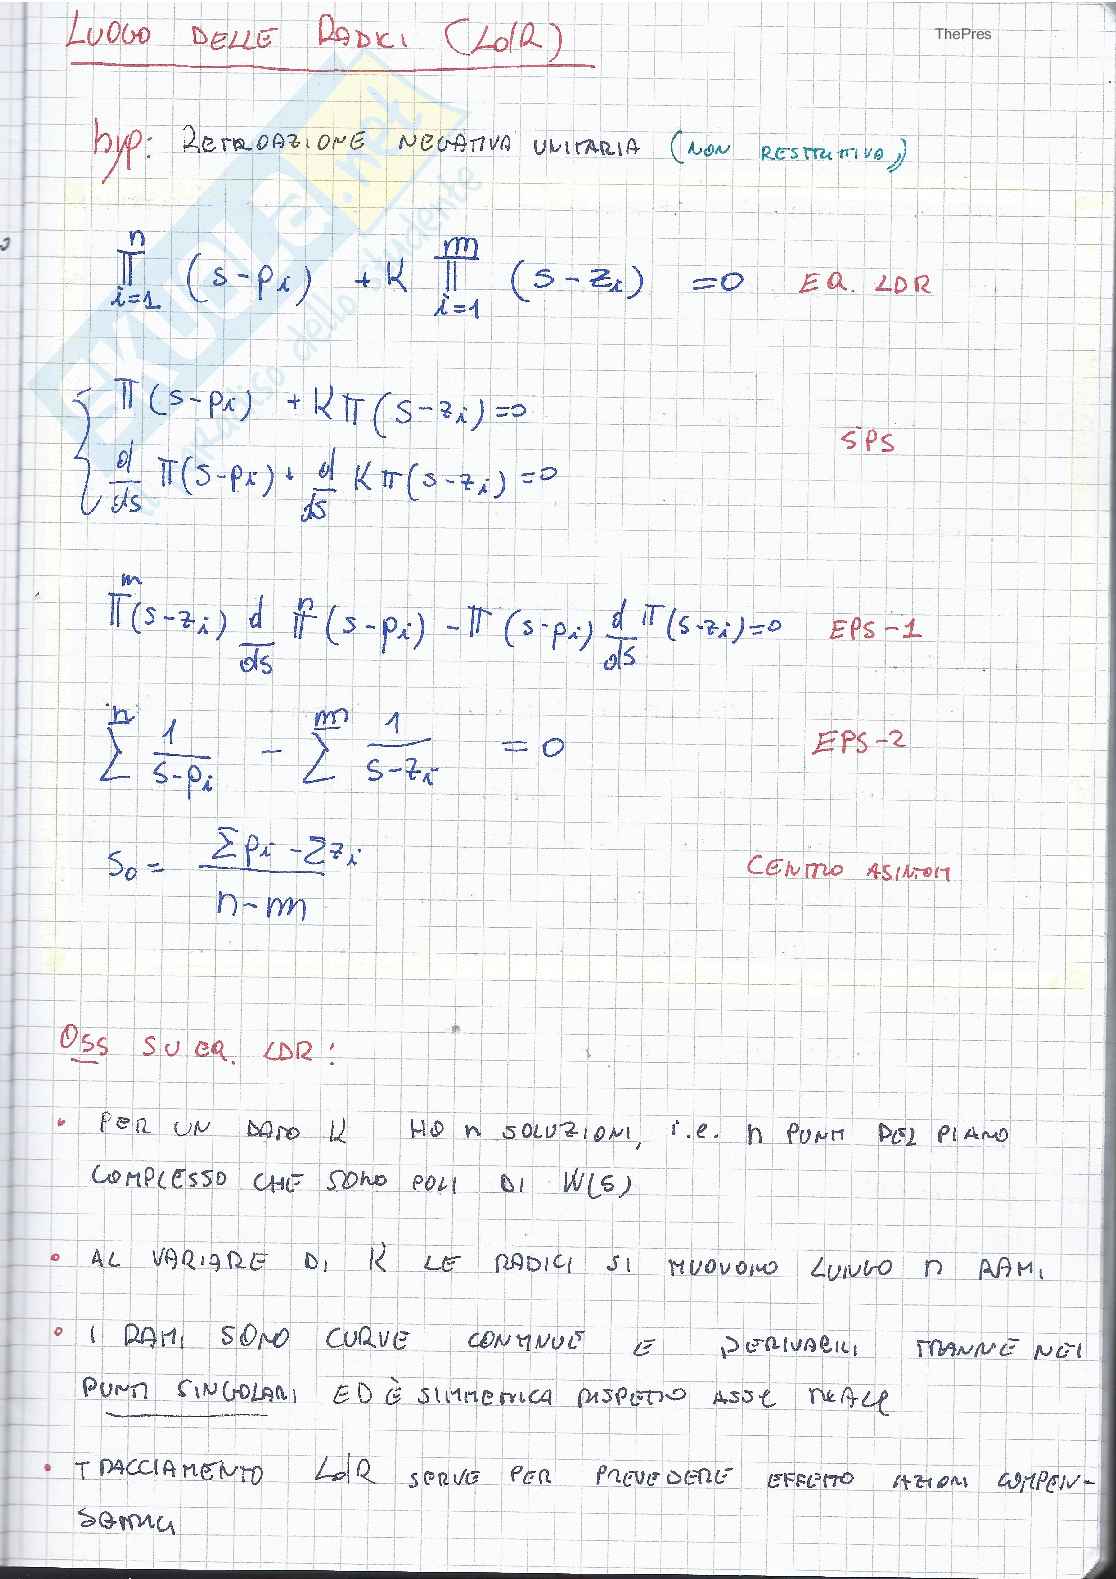 LUOGO DELLE RADICI (LdR)
ThePres
hyp: RETROAZIONE NEGATIVA UNITARIA (NON RESTRITTIVA)
n ∏ i=1 (s-pi) + K m ∏ i=1 (s-zi) =0 EQ. LDR
{ ∏(s-pi) + K∏(s-zi)=0
SPS
d/ds ∏(s-pi) + d/ds K∏(s-zi)=0
m ∏(s-zi) d/ds n ∏(s-pi) - ∏(s-pi) d/ds ∏(s-zi)=0 EPS-1
n ∑ 1/(s-pi) - m ∑ 1/(s-zi) = 0 EPS-2
S0 = (∑pi - ∑zi)/(n-m) CENTRO ASINTOTI
OSS SU EQ. LDR:
• PER UN DATO K HO n SOLUZIONI, i.e. n PUNTI DEL PIANO
COMPLESSO CHE SONO POLI DI W(S)
• AL VARIARE DI K LE RADICI SI MUOVONO LUNGO n RAMI
• I RAMI SONO CURVE CONTINUE E DERIVABILI TRANNE NEI
PUNTI SINGOLARI ED È SIMMETRICA RISPETTO ASSE REALE
• TRACCIAMENTO LdR SERVE PER PREVEDERE EFFETTO AZIONI COMPEN-
SATRICI
SKUOLA.net
il paradiso dello studente